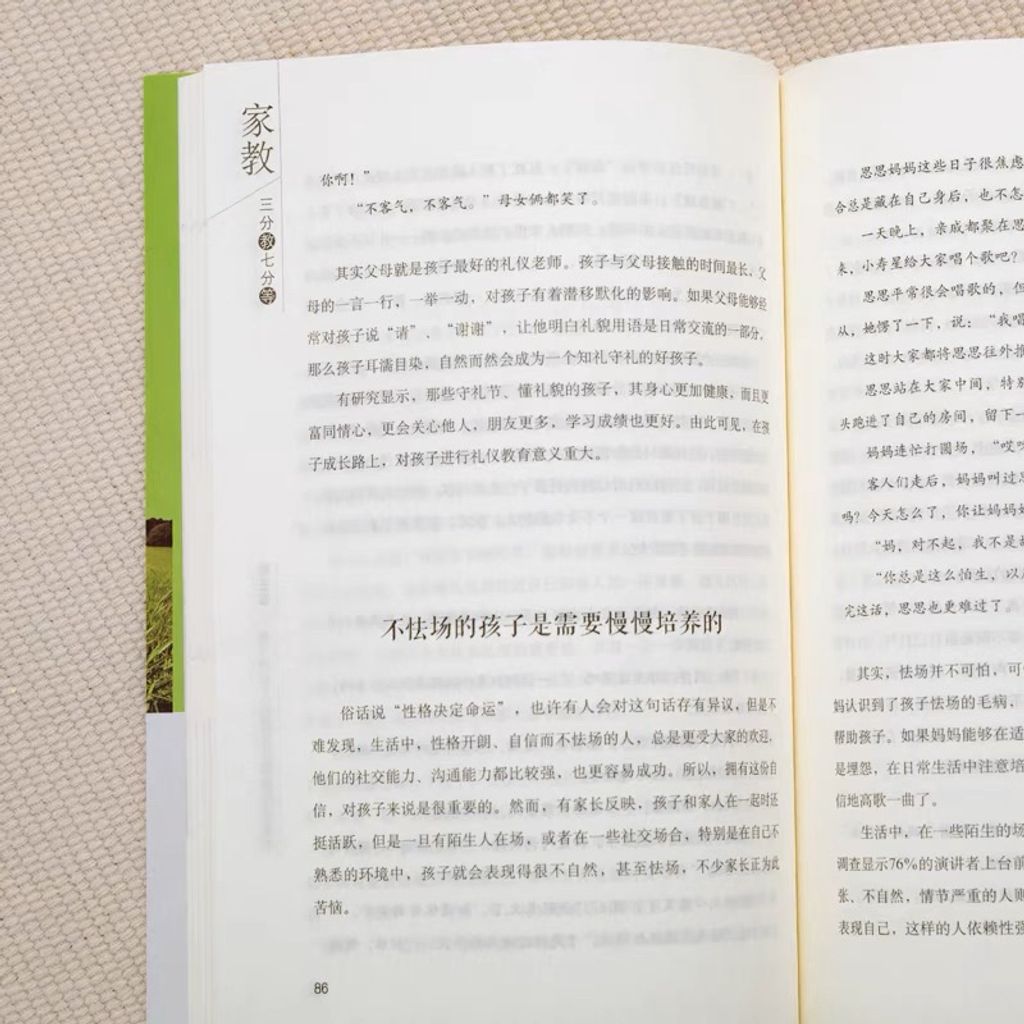 家教
三分教七分等
你啊！”
“不客气，不客气。”母女俩都笑了。
其实父母就是孩子最好的礼仪老师。孩子与父母接触的时间最长，父
母的一言一行，一举一动，对孩子有着潜移默化的影响。如果父母能够经
常对孩子说“请”、“谢谢”，让他明白礼貌用语是日常交流的一部分，
那么孩子耳濡目染，自然而然会成为一个知礼守礼的好孩子。
有研究显示，那些守礼节、懂礼貌的孩子，其身心更加健康，而且更
富同情心，更会关心他人，朋友更多，学习成绩也更好。由此可见，在孩
子成长路上，对孩子进行礼仪教育意义重大。
不怯场的孩子是需要慢慢培养的
俗话说“性格决定命运”，也许有人会对这句话存有异议，但是不
难发现，生活中，性格开朗、自信而不怯场的人，总是更受大家的欢迎，
他们的社交能力、沟通能力都比较强，也更容易成功。所以，拥有这份自
信，对孩子来说是很重要的。然而，有家长反映，孩子和家人在一起时还
挺活跃，但是一旦有陌生人在场，或者在一些社交场合，特别是在自己不
熟悉的环境中，孩子就会表现得很不自然，甚至怯场，不少家长正为此
苦恼。
86
思思妈妈这些日子很焦虑
合总是藏在自己身后，也不怎
一天晚上，亲戚都聚在思
来，小寿星给大家唱个歌吧？
思思平常很会唱歌的，但
从，她愣了一下，说：“我唱
这时大家都将思思往外推
思思站在大家中间，特别
头跑进了自己的房间，留下一
妈妈连忙打圆场，“哎呀
客人们走后，妈妈叫过思
吗？今天怎么了，你让妈妈
“妈，对不起，我不是故
“你总是这么怕生，以后
完这话，思思也更难过了。
其实，怯场并不可怕，可
妈认识到了孩子怯场的毛病，
帮助孩子。如果妈妈能够在适
是埋怨，在日常生活中注意培
信地高歌一曲了。
生活中，在一些陌生的场
调查显示76%的演讲者上台前
张、不自然，情节严重的人则
表现自己，这样的人依赖性强